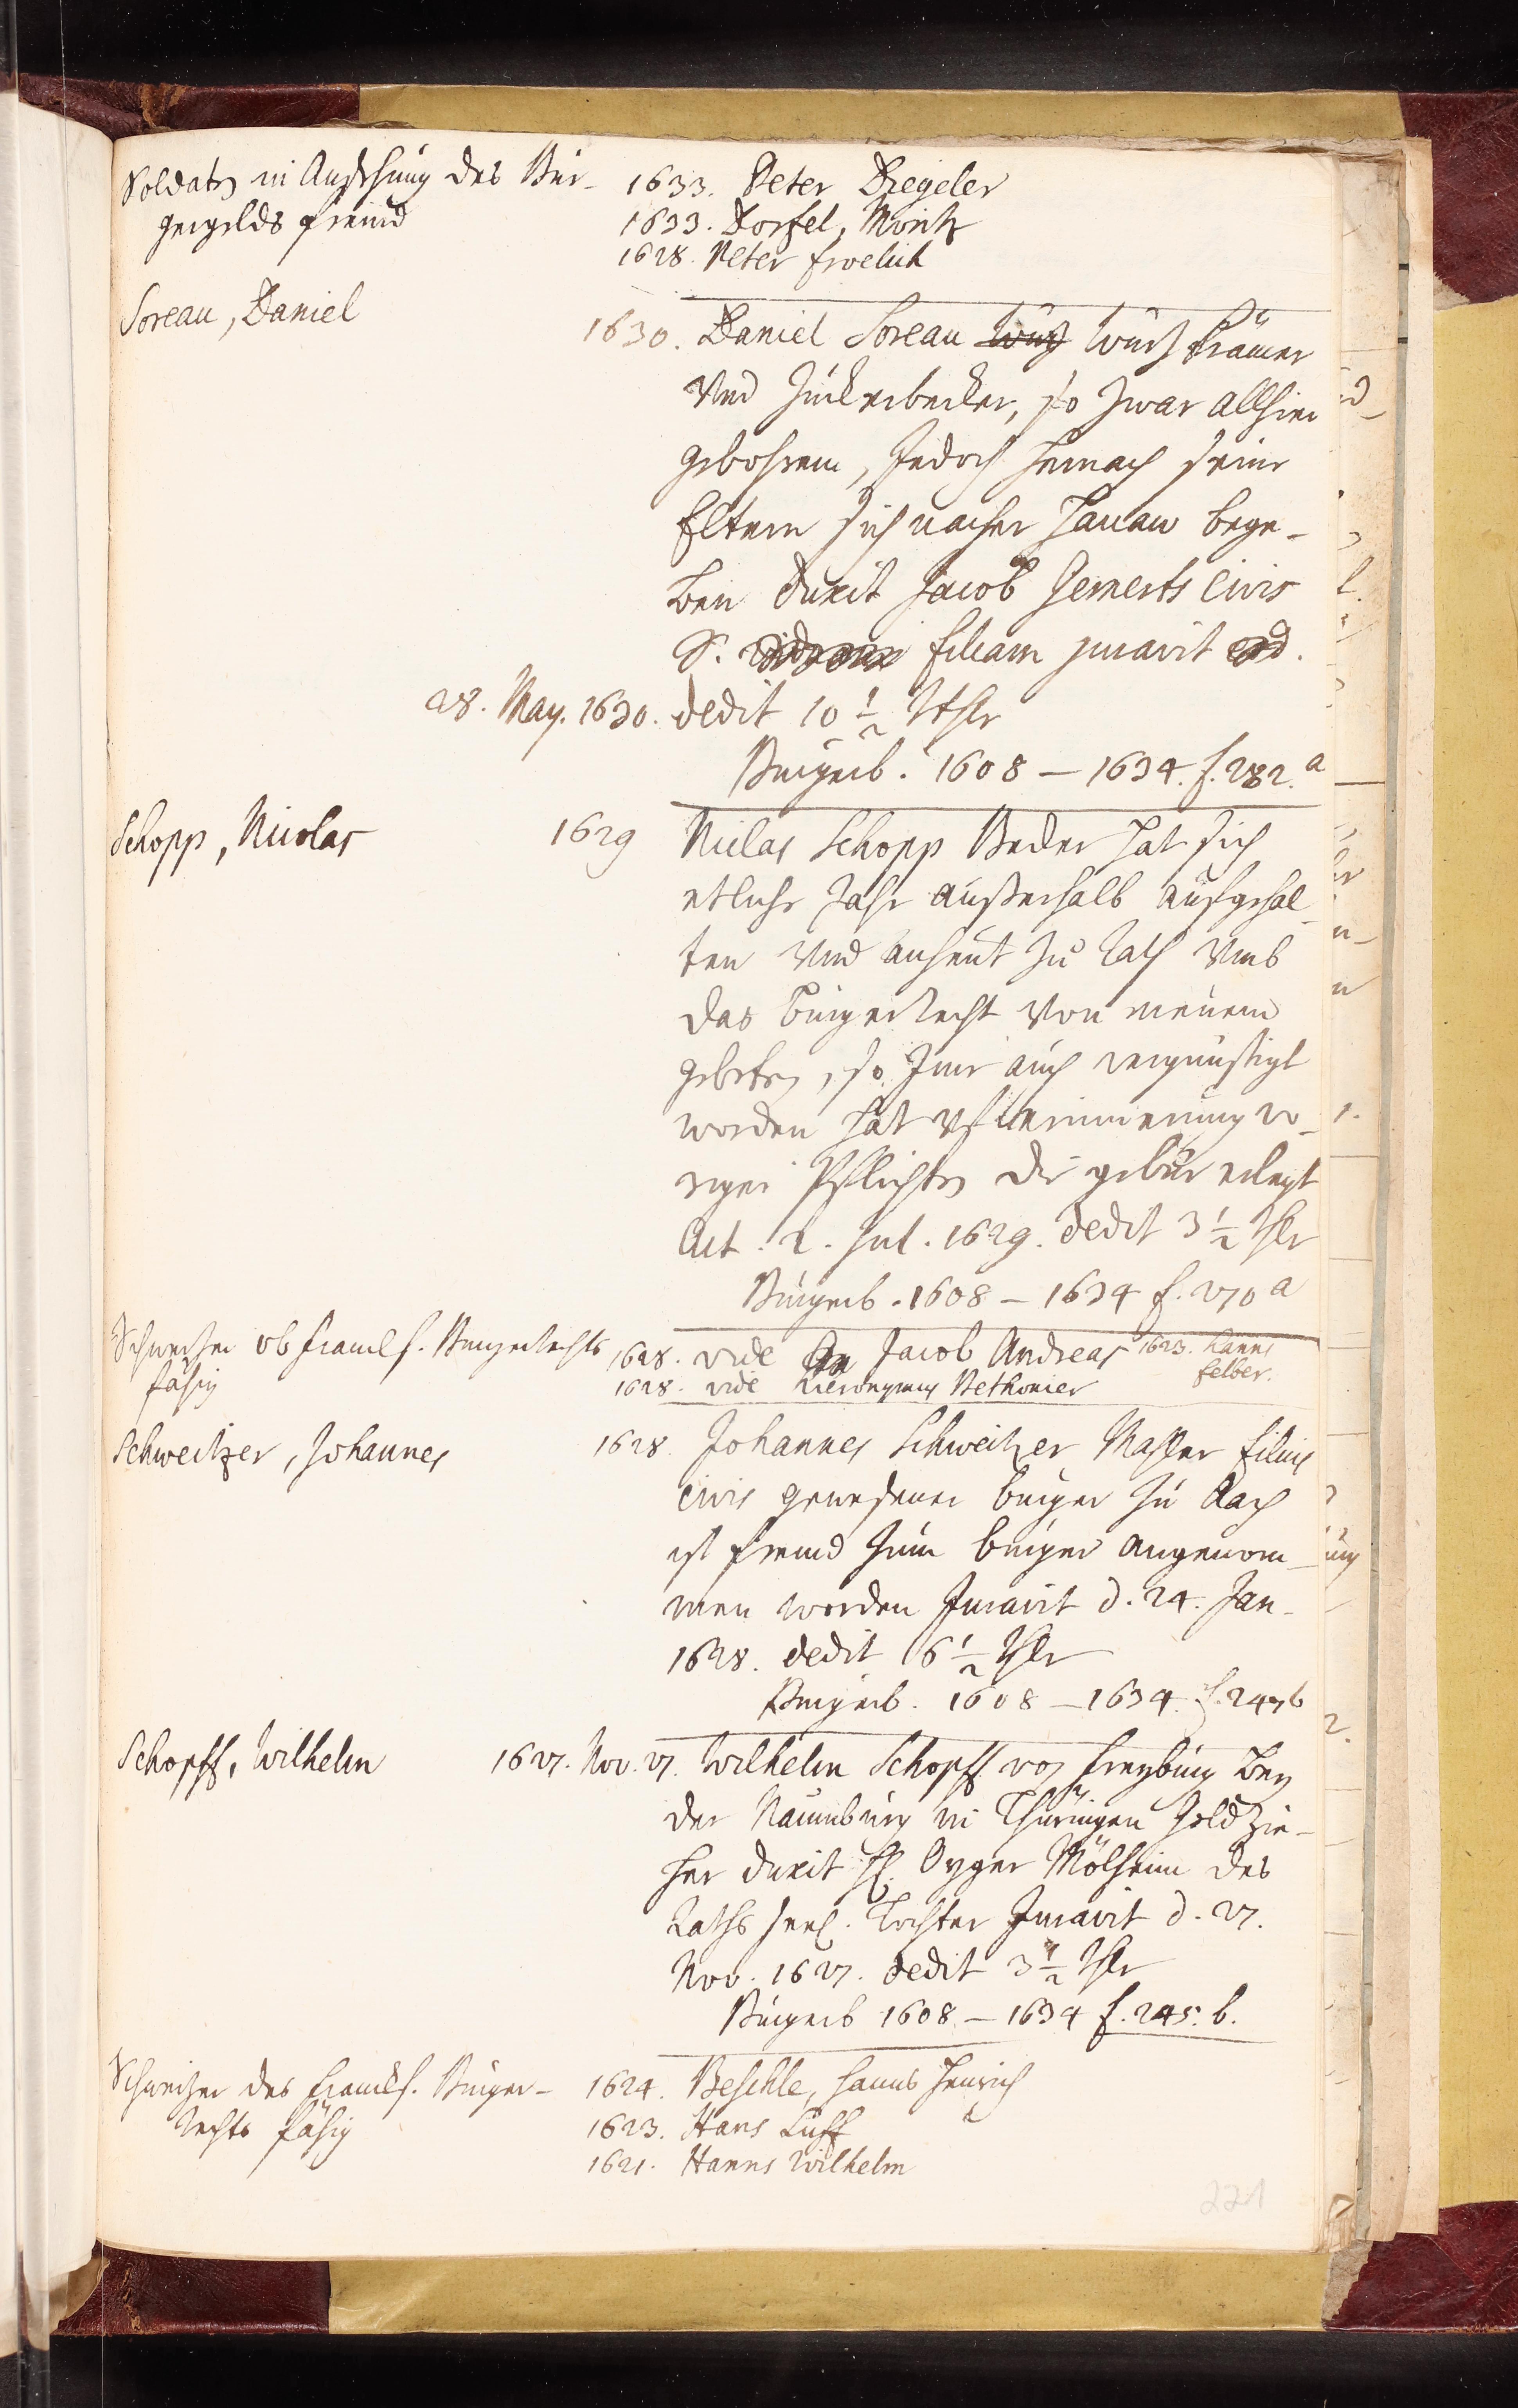 Soldaten in Ansehung des Bür-
gergelds fremd
1633. Peter Ziegeler
1633. Dorfel, Moritz
1628. Peter Froelich
Soreau, Daniel
1630. Daniel Soreau Würtz Würtz Krämer
Vnd Zuckerbecker, so zwar allhier
gebohren, Jedoch hernach seine
Eltern sich nacher Hanau bege-
ben duxit Jacob Gemerts Civis
S. filiam juravit ead.
28. May. 1630. dedit 10 1/2 Rthlr
Burgerb. 1608 – 1634. f. 282. a
Schopp, Nicolas
1629 Niclas Schopp Beder hat sich
etliche Jahr außerhalb aufgehal-
ten Vnd anheut zu Rath Vmb
das Burgerrecht Von neuem
gebeten, so Jme auch vergünstigt
worden hat vf Erinnerung vo-
riger Pflichten die gebür erlegt
Act. 2. Jul. 1629. dedit 3 1/2 Thlr
Burgerb. 1608 – 1634 f. 270 a
Schweitzer ob Franckf. Burgerrechts
fähig
1628. vide Jacob Andreas 1623. Hanns
Felber.
1628. vide Hieronymus Bethonier
Schweitzer, Johannes
1628. Johannes Schweitzer Mahler filius
civis gewesener burger zu Aach
ist fremd zum burger angenom-
men worden Juravit d. 24. Jan.
1628. dedit 6 1/2 Thlr
Burgerb. 1608 – 1634. f. 247 b
Schopff, Wilhelm
1627. Nov. 27. Wilhelm Schopff von Freyburg bey
der Naumburg in Thüringen Goldzie-
her duxit H. Oyger Mölheim des
Raths seel. Tochter Juravit d. 27.
Nov. 1627. dedit 3 1/2 Thlr
Burgerb 1608 – 1634 f. 245. b.
Schweitzer des Franckf. Burger-
rechts fähig
1624. Beschle, Hanns Henrich
1623. Hans Luff
1621. Hanns Wilhelm
221